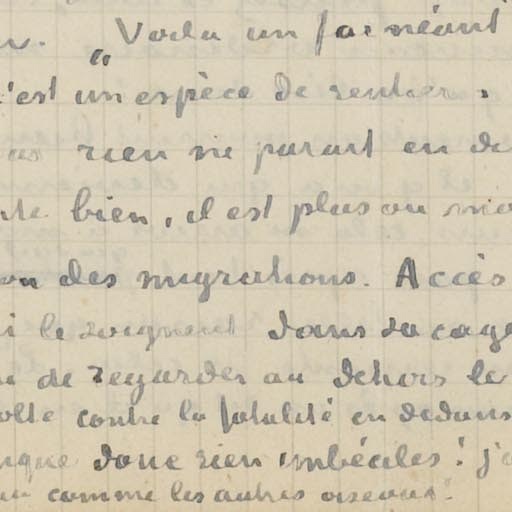 „ Voila un fai néant
c'est un espèce de rentier.
rien ne parait en de
bien, il est plus ou mo
des migrations. Accès
i le soignent dans sa cage
de regarder au dehors le
olte contre la fatalité en dedans
nque donc rien imbéciles! j'a
comme les autres oiseaux!